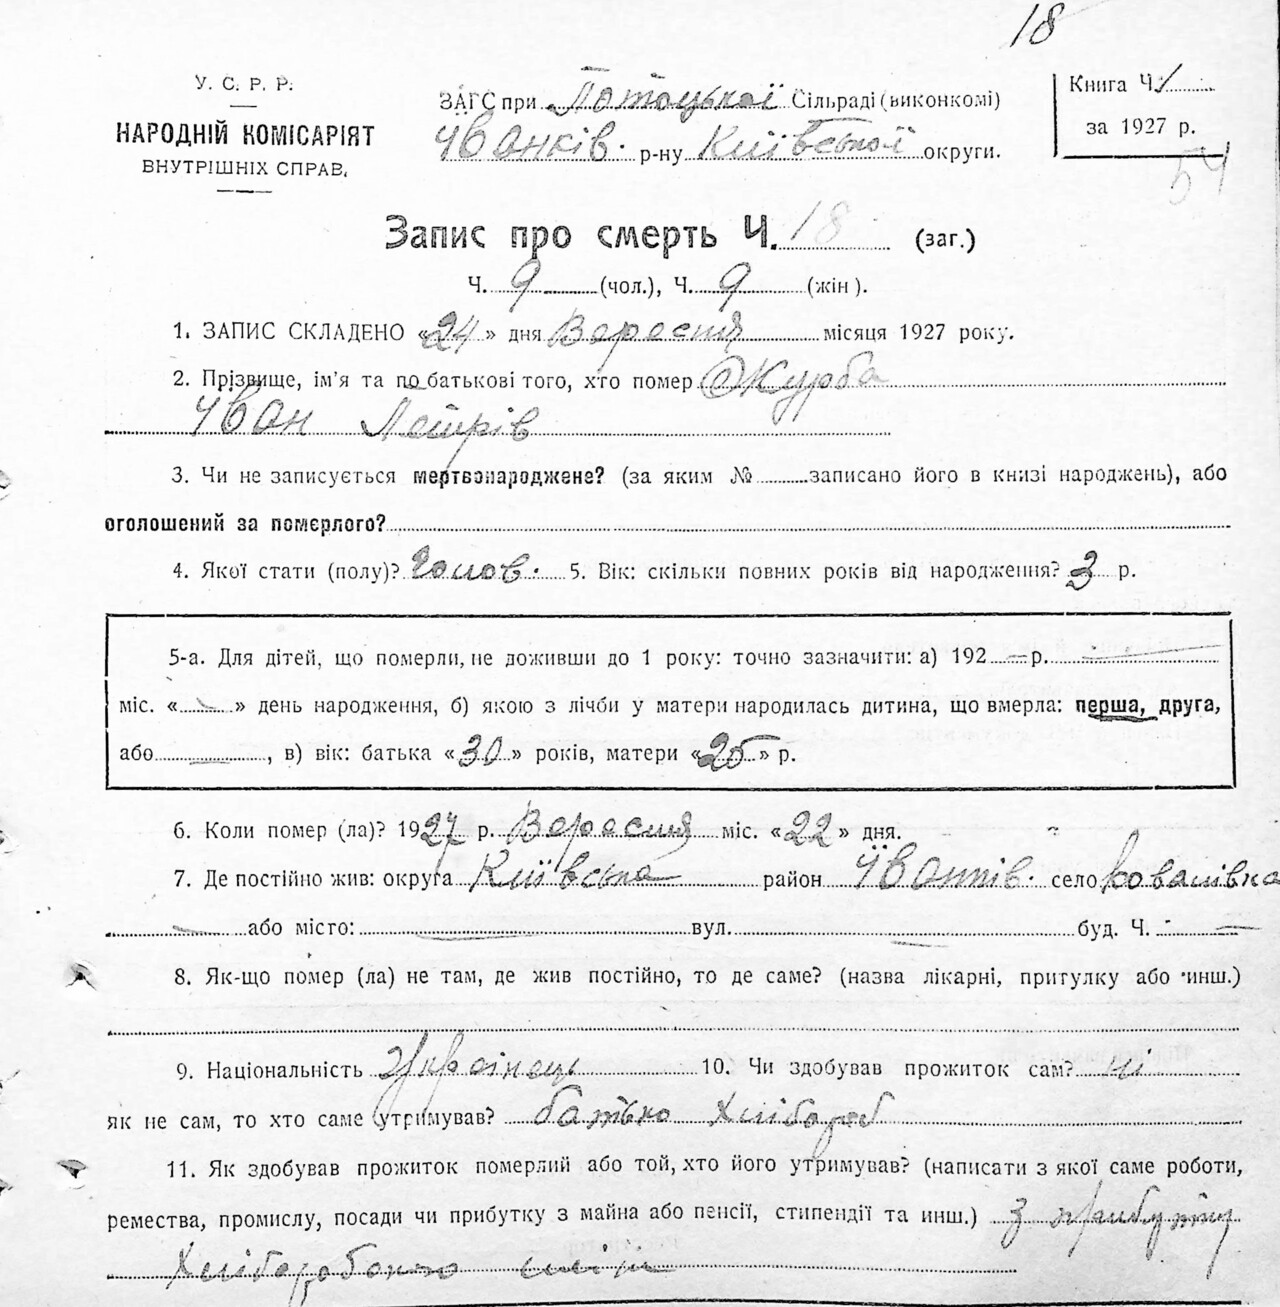 18
У. С. Р. Р.
НАРОДНІЙ КОМІСАРІЯТ
ВНУТРІШНІХ СПРАВ.
ЗАГС при Потоцької Сільраді (виконкомі)
Іванків. р-ну Київської округи.
Книга Ч. 1
за 1927 р.
54
Запис про смерть Ч. 18 (заг.)
Ч. 9 (чол.), Ч. 9 (жін).
1. ЗАПИС СКЛАДЕНО «24» дня Вересня місяця 1927 року.
2. Прізвище, ім'я та по батькові того, хто помер Журба
Іван Петрів
3. Чи не записується мертвонароджене? (за яким № записано його в книзі народжень), або
оголошений за померлого?
4. Якої стати (полу)? Чолов. 5. Вік: скільки повних років від народження? 3 р.
5-а. Для дітей, що померли, не доживши до 1 року: точно зазначити: а) 192 — р.
міс. « » день народження, б) якою з лічби у матери народилась дитина, що вмерла: перша, друга,
або , в) вік: батька «30» років, матери «25» р.
6. Коли помер (ла)? 1927 р. Вересня міс. «22» дня.
7. Де постійно жив: округа Київська район Іванків. село Ковалівка
або місто: вул. буд. Ч. —
8. Як-що помер (ла) не там, де жив постійно, то де саме? (назва лікарні, притулку або инш.)
9. Національність Українець 10. Чи здобував прожиток сам? ні
як не сам, то хто саме утримував? батько Хлібороб
11. Як здобував прожиток померлий або той, хто його утримував? (написати з якої саме роботи,
ремества, промислу, посади чи прибутку з майна або пенсії, стипендії та инш.) з прибутку